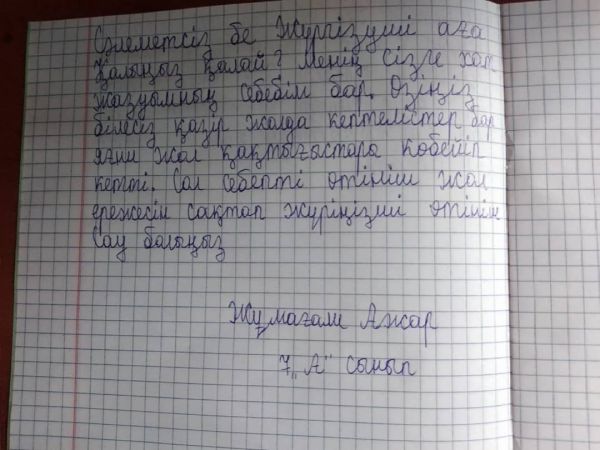 Сәлеметсіз бе Жүргізуші аға
Қалыңыз қалай? Менің Сізге хат
жазуымның себебім бар. Өзіңіз
білесіз қазір жолда кептелістер бар
яғни жол қақтығыстара көбейіп
кетті. Сол себепті өтініш жол
ережесін сақтап жүріңізші өтінім
Сау болыңыз
Жұмағали Ажар
7 "А" сынып